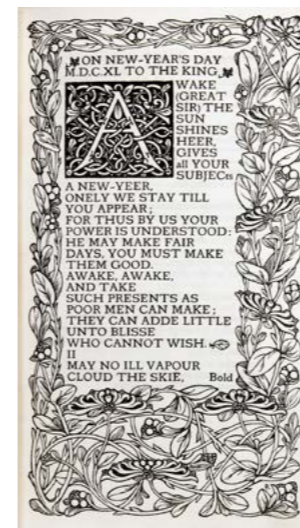 ON NEW-YEAR'S DAY
M.D.C.XL TO THE KING
AWAKE
(GREAT
SIR) THE
SUN
SHINES
HEER,
GIVES
all YOUR
SUBJECts
A NEW-YEER,
ONELY WE STAY TILL
YOU APPEAR;
FOR THUS BY US YOUR
POWER IS UNDERSTOOD:
HE MAY MAKE FAIR
DAYS, YOU MUST MAKE
THEM GOOD.
AWAKE, AWAKE,
AND TAKE
SUCH PRESENTS AS
POOR MEN CAN MAKE;
THEY CAN ADDE LITTLE
UNTO BLISSE
WHO CANNOT WISH.
II
MAY NO ILL VAPOUR
CLOUD THE SKIE, Bold